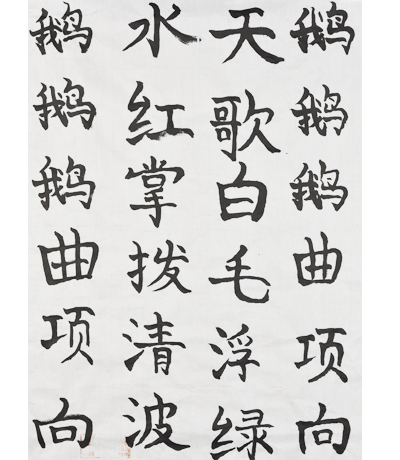 鹅鹅鹅曲项向
天歌白毛浮绿
水红掌拨清波
鹅鹅鹅曲项向